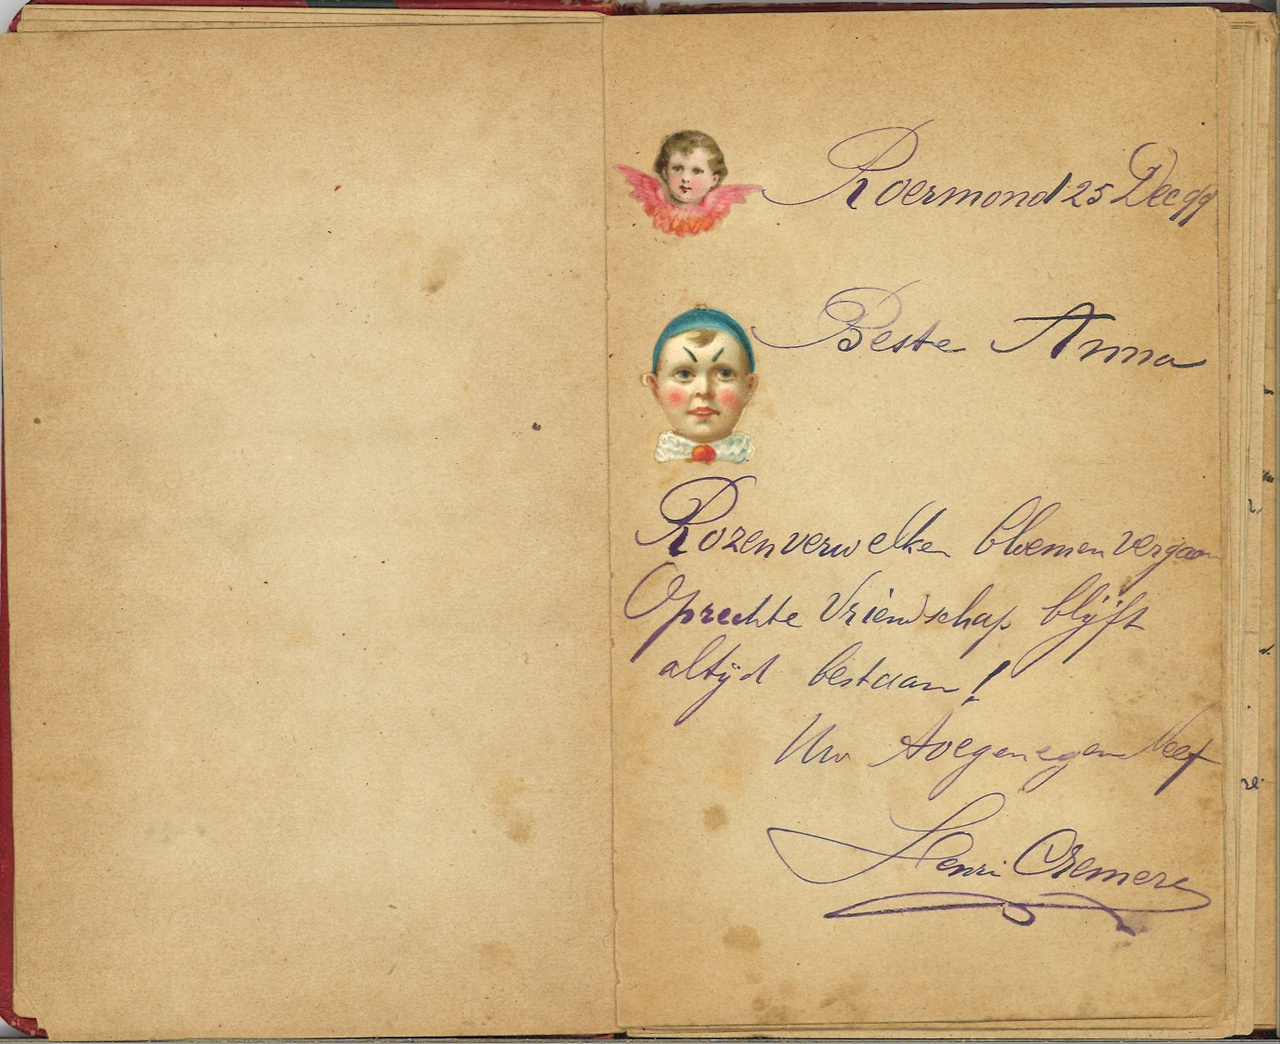 Roermond 25 Dec 99
Beste Anna
Rozen verwelken bloemen vergaan
Oprechte Vriendschap blijft
altijd bestaan!
Uw Toegenegen Neef
Henri Cremers